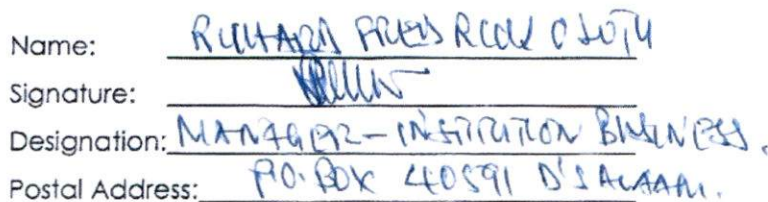 Name: RICHARD FREDRICK OLOTU
Signature:
Designation: MANAGER - INSTITUTION BUSINESS.
Postal Address: P.O. BOX 40591 D'SALAAM.